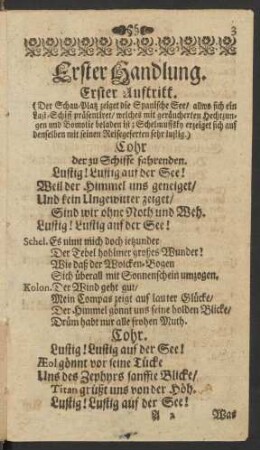 3
Erster Handlung.
Erster Auftritt.
(Der Schau-Platz zeiget die Spanische See/ allwo sich ein
Last-Schiff präsentiret/ welches mit geräucherten Hechtzun-
gen und Bomolie beladen ist; Schelmuffsky erzeiget sich auf
denselben mit seinen Reisegeferten sehr lustig.)
Cohr
der zu Schiffe fahrenden.
Lustig! Lustig auf der See!
Weil der Himmel uns geneiget/
Und kein Ungewitter zeiget/
Sind wir ohne Noth und Weh.
Lustig! Lustig auf der See!
Schel. Es nimt mich doch ietzunder
Der Tebel hohlmer grosses Wunder!
Wie daß der Wolcken-Bogen
Sich überall mit Sonnenschein umzogen.
Kolon. Der Wind geht gut/
Mein Compas zeigt auf lauter Glücke/
Der Himmel gönnt uns seine holden Blicke/
Drüm habt nur alle frohen Muth.
Cohr.
Lustig! Lustig auf der See!
Æol gönnt vor seine Tücke
Uns des Zephyrs sanffte Blicke/
Titan grüßt uns von der Höh.
Lustig! Lustig auf der See!
A 2 Was